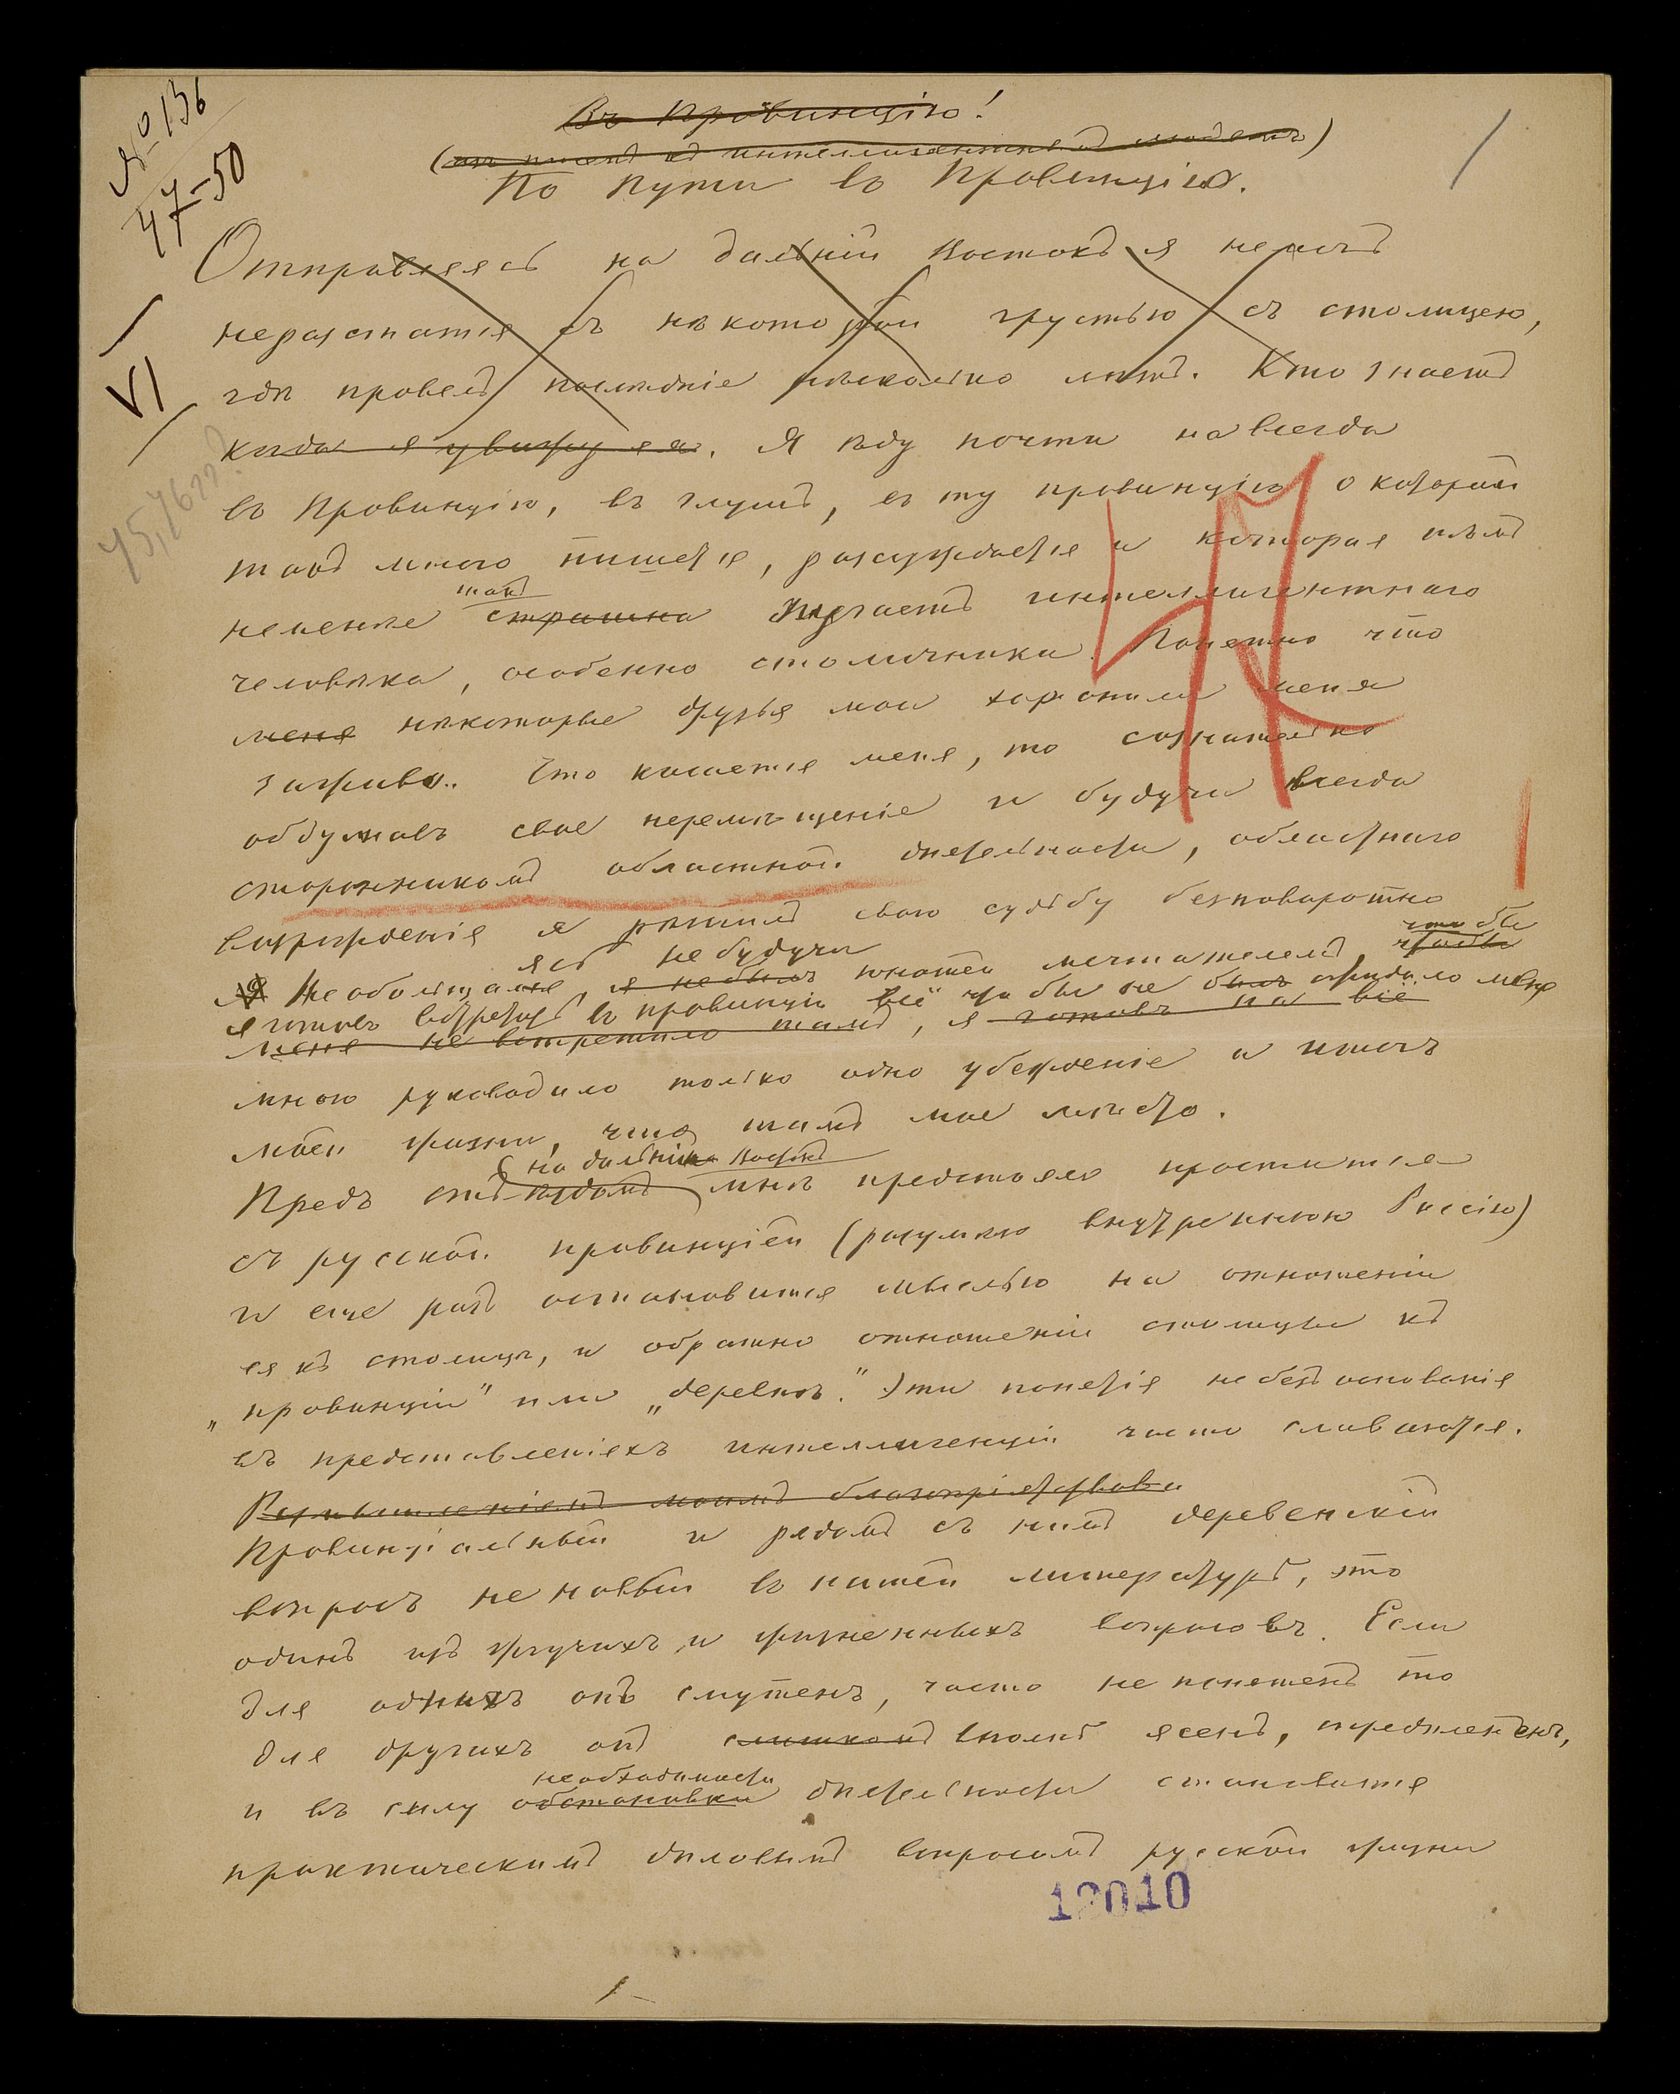 № 136
47-50
Въ Провинцію!
(къ интеллигентнымъ людямъ)
По пути въ Провинцію.
1
Отправляясь на дальній Востокъ я не могъ
не разстатся съ нѣкоторой грустью съ столицею,
гдѣ провелъ послѣдніе нѣсколько лѣтъ. Кто знаетъ
VI
когда я увижу ея. Я ѣду почти навсегда
въ Провинцію, въ глушь, въ ту провинцію о которой
такъ много пишется, разсуждается и которая тѣмъ
не менѣе такъ страшна пугаетъ интеллигентнаго
человѣка, особенно столичника. Понятно что
меня нѣкоторые друзья мои хоронили меня
заживо. Что касается меня, то сознательно
обдумавъ свое перемѣщеніе и будучи всегда
сторонникомъ областной дѣятельности, областнаго
возрожденія я рѣшилъ свою судьбу безповоротно
ясь не будучи что бы
Я Не обольщался, я не былъ юношей мечтателемъ, чтобы
я готовъ встрѣтить въ провинціи всё что бы не было ожидало меня
меня не встретило тамъ, я готовъ на всё
мною руководило только одно убежденіе и итогъ
моей жизни, что тамъ мое мѣсто.
на дальній Востокъ
Предъ отъѣздомъ мнѣ предстояло проститься
съ русской провинціей (разумѣю внутреннюю Россію)
и еще разъ остановится мыслью на отношеніи
ея къ столицѣ, и обратно отношеніи столицы къ
„провинціи" или „деревнѣ." Эти понятія не безъ основанія
въ представленіяхъ интеллигенціи часто сливаются.
Размышленіямъ моимъ благопріятствова
Провинціальный и рядомъ съ нимъ деревенскій
вопросъ не новый въ нашей литературѣ, это
одинъ изъ жгучихъ и жизненныхъ вопросовъ. Если
для однихъ онъ смутенъ, часто не понятенъ то
для другихъ онъ слишкомъ вполнѣ ясенъ, опредѣлененъ,
необходимости
и въ силу обстановки дѣятельности становится
практическимъ дѣловымъ вопросомъ русской жизни
12010
1